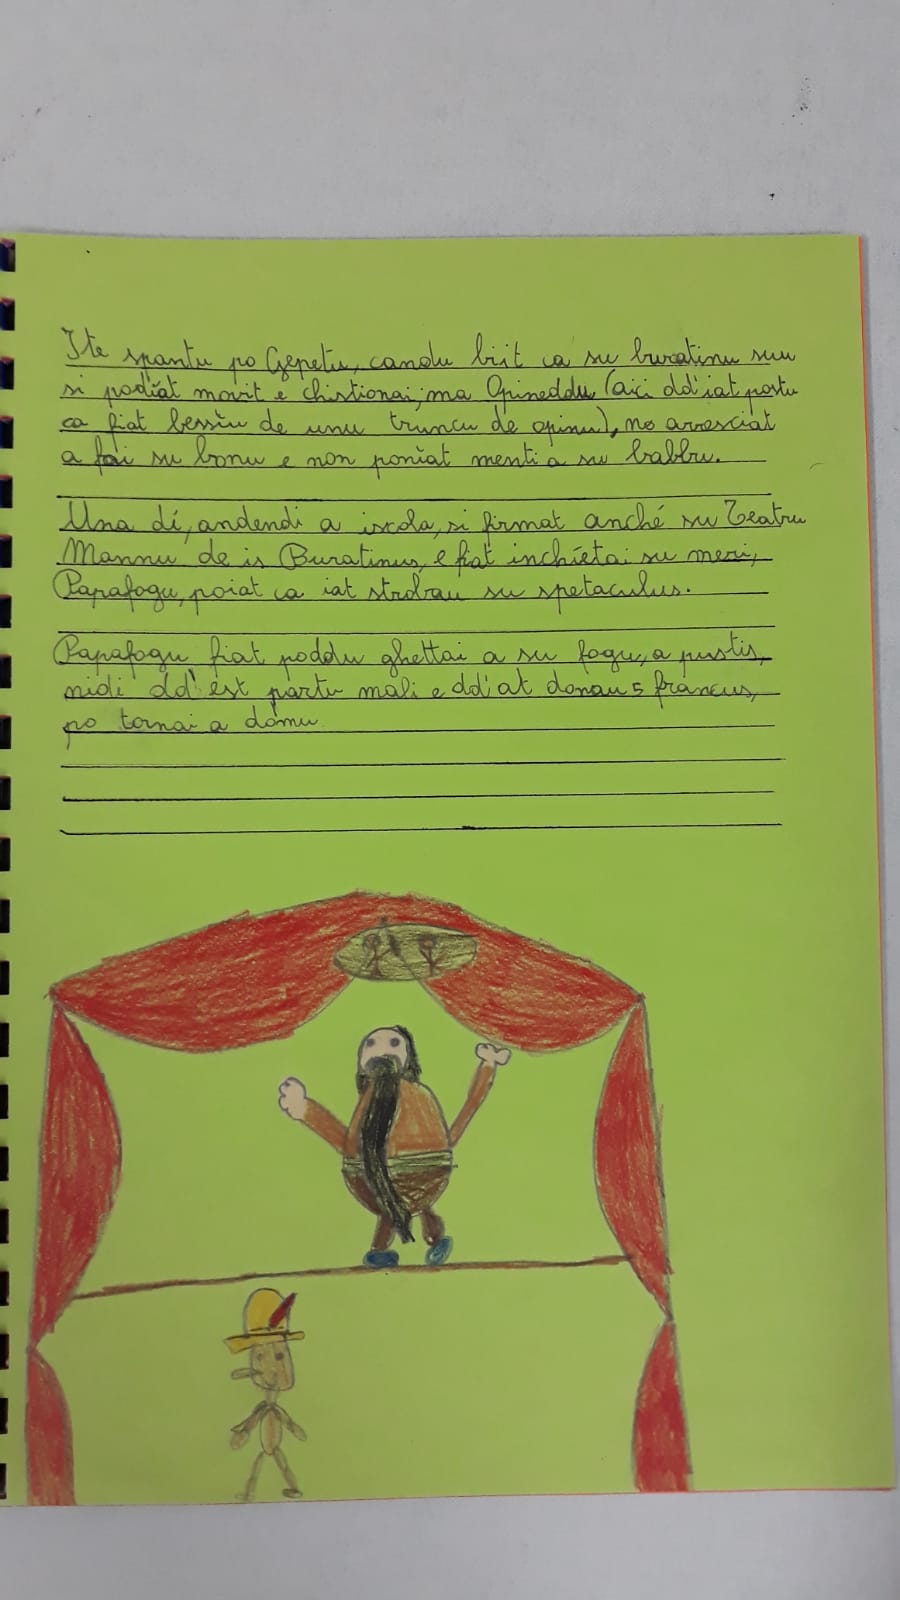 Ite spantu po Gepetu, candu biit ca su buratinu suu
si podiat movit e chistionai, ma Opineddu (aici dd'iat postu
ca fiat bessiu de unu truncu de opinu), no arresciat
a fai su bonu e non poniat menti a su babbu.
Una dí, andendi a iscola, si firmat anché su Teatru
Mannu de is Buratinus, e fiat inchietai su meri,
Papafogu, poiat ca iat strobau su spetaculus.
Papafogu fiat poddu ghettai a su fogu, a pustis,
nidi dd'est partu mali e dd'at donau 5 francus,
po tornai a domu